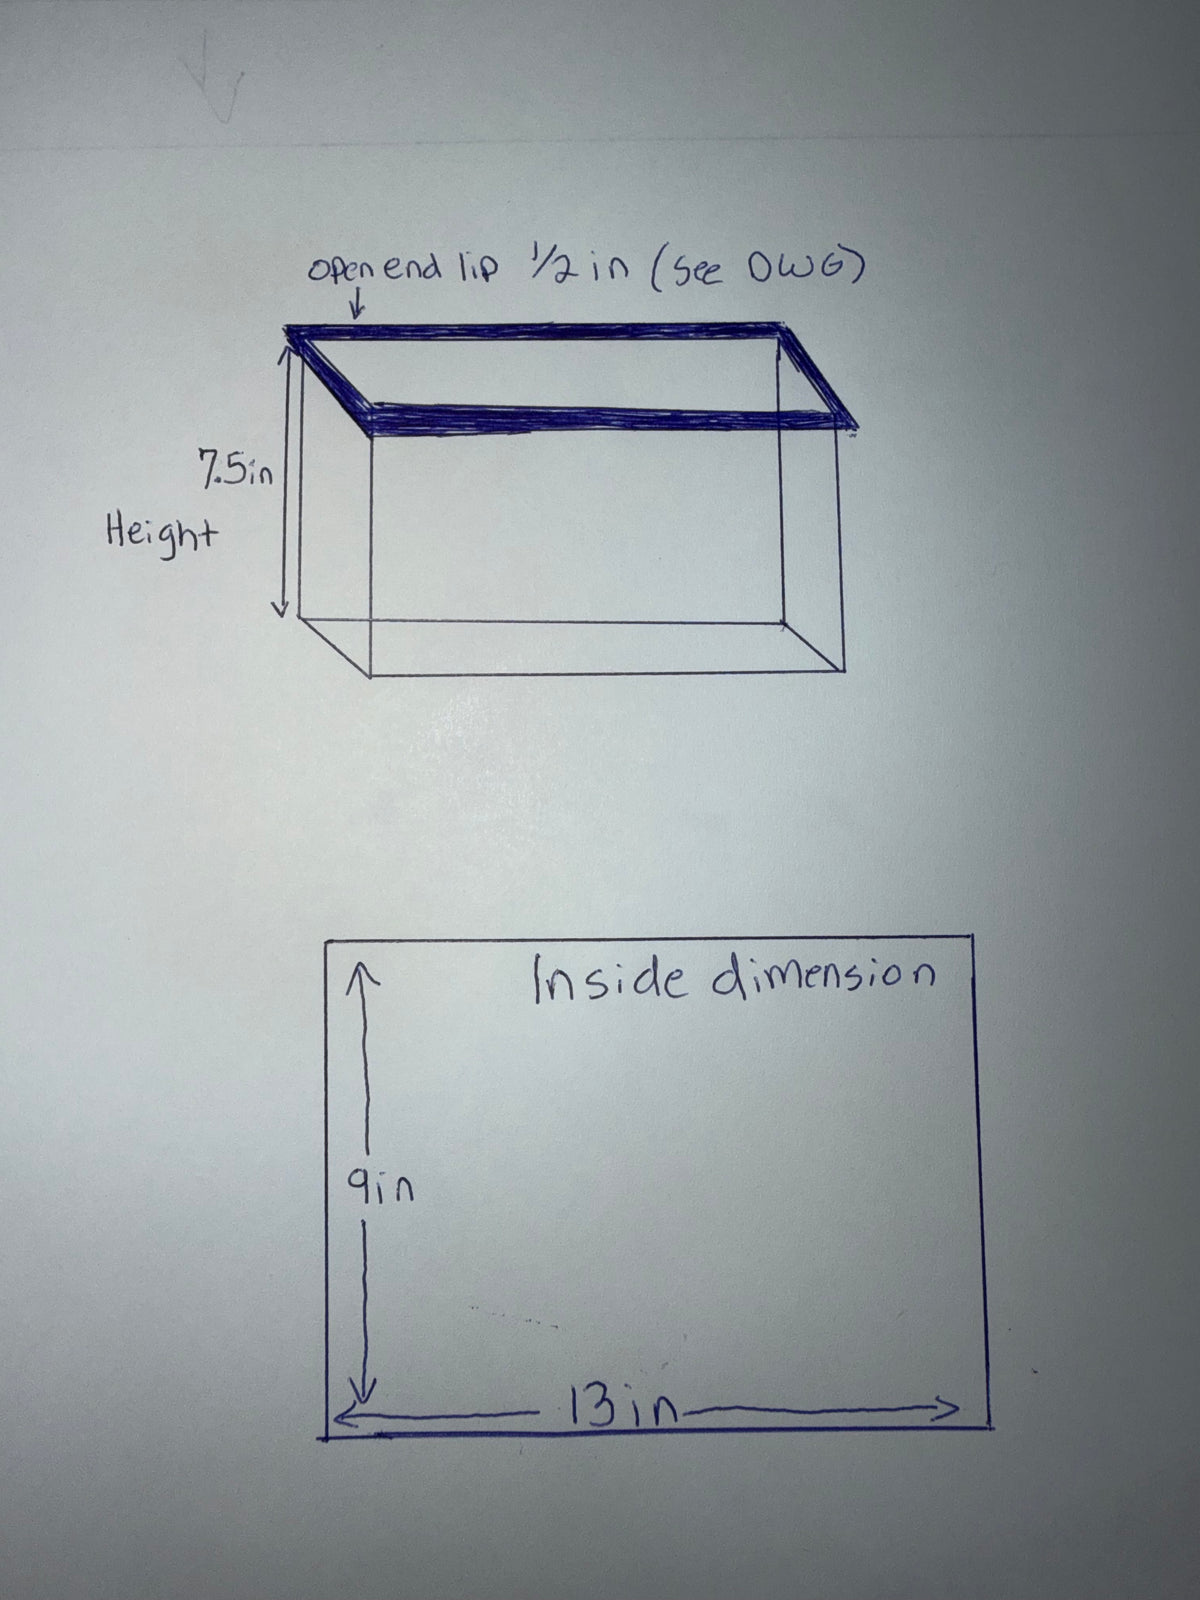 open end lip 1/2 in (see DWG)
7.5in
Height
Inside dimension
9in
13in